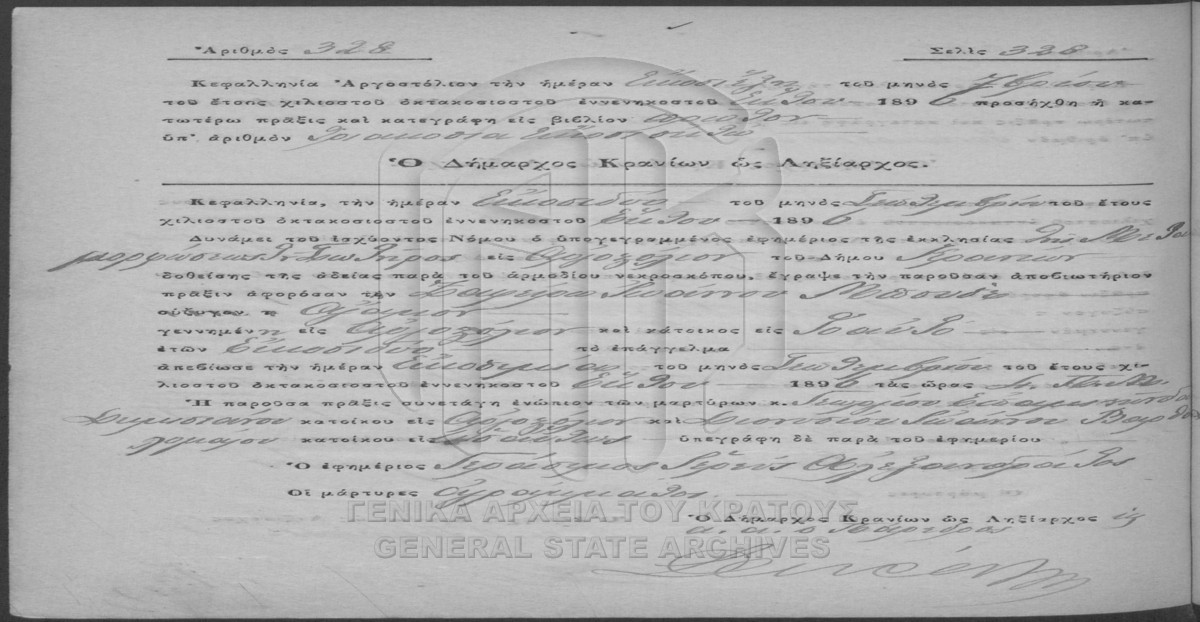 Ἀριθμὸς 328 Σελὶς 328
Κεφαλληνία Ἀργοστόλιον τὴν ἡμέραν Εἰκοσιέξ τοῦ μηνὸς 7βρίου
τοῦ ἔτους χιλιοστοῦ ὀκτακοσιοστοῦ ἐννενηκοστοῦ Ἕκτου 1896 προσήχθη ἡ κα-
τωτέρω πρᾶξις καὶ κατεγράφη εἰς βιβλίον πρῶτον
ὑπ' ἀριθμὸν Τριακόσια εἴκοσι οκτώ
Ὁ Δήμαρχος Κρανίων ὡς Ληξίαρχος.
Κεφαλληνία, τὴν ἡμέραν Εἰκοσιδύο τοῦ μηνὸς Σεπτεμβρίου τοῦ ἔτους
χιλιοστοῦ ὀκτακοσιοστοῦ ἐννενηκοστοῦ Ἕκτου 1896
Δυνάμει τοῦ ἰσχύοντος Νόμου ὁ ὑπογεγραμμένος ἐφημέριος τῆς ἐκκλησίας τῆς Μετα
μορφώσεως τ. Σωτῆρος εἰς Ἀργοστόλιον τοῦ Δήμου Κρανίων
δοθείσης τῆς ἀδείας παρὰ τοῦ ἁρμοδίου νεκροσκόπου, ἔγραψε τὴν παροῦσαν ἀποβιωτήριον
πρᾶξιν ἀφορῶσαν τὴν Ἰωάννου
σύζυγον ἢ Ἄγαμον
γεννημένη εἰς Ἀργοστόλιον καὶ κάτοικος εἰς Ταὐτό
ἐτῶν Εἰκοσιδύο τὸ ἐπάγγελμα
ἀπεβίωσε τὴν ἡμέραν τοῦ μηνὸς Σεπτεμβρίου τοῦ ἔτους χι-
λιοστοῦ ὀκτακοσιοστοῦ ἐννενηκοστοῦ Ἕκτου 1896 τὰς ὥρας
Ἡ παροῦσα πρᾶξις συνετάγη ἐνώπιον τῶν μαρτύρων κ. Γεωργίου Ἐπαμεινώνδα
κατοίκου εἰς Ἀργοστόλιον καὶ Διονυσίου Ἰωάννου Βαρθο
λομαίου κατοίκου εἰς ὑπεγράφη δὲ παρὰ τοῦ ἐφημερίου
Ὁ ἐφημέριος Γεράσιμος Ἱερεὺς Ἀλεξανδράτος
Οἱ μάρτυρες ἀγράμματοι
Ὁ Δήμαρχος Κρανίων ὡς Ληξίαρχος
ὁ Πάρεδρος
ΓΕΝΙΚΑ ΑΡΧΕΙΑ ΤΟΥ ΚΡΑΤΟΥΣ
GENERAL STATE ARCHIVES